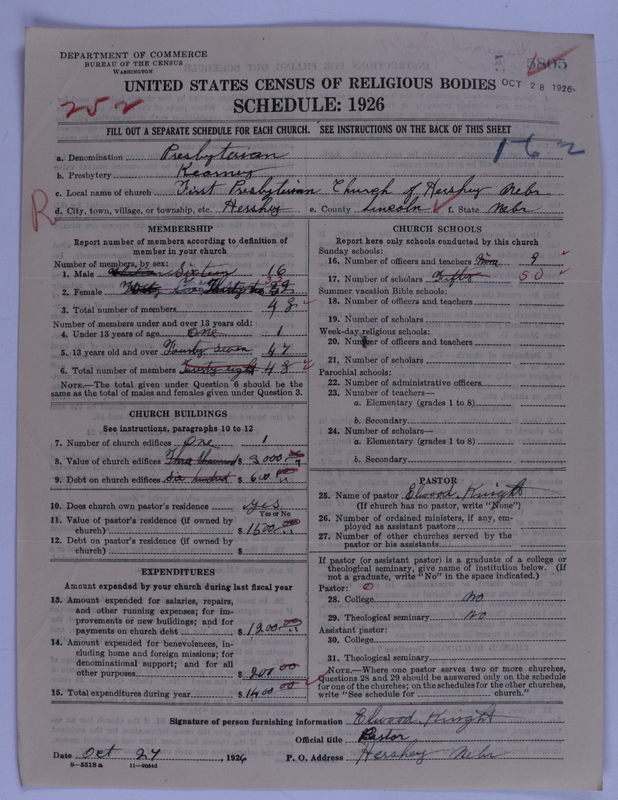 DEPARTMENT OF COMMERCE
BUREAU OF THE CENSUS
WASHINGTON
5805
UNITED STATES CENSUS OF RELIGIOUS BODIES OCT 28 1926
252
SCHEDULE: 1926
FILL OUT A SEPARATE SCHEDULE FOR EACH CHURCH. SEE INSTRUCTIONS ON THE BACK OF THIS SHEET
162
a. Denomination Presbyterian
b. Presbytery Kearney
c. Local name of church First Presbyterian Church of Hershey Nebr
R
d. City, town, village, or township, etc. Hershey e. County Lincoln f. State Nebr
MEMBERSHIP
Report number of members according to definition of
member in your church
Number of members, by sex:
1. Male Sixteen 16
2. Female Thirty two 32
3. Total number of members 48
Number of members under and over 13 years old:
4. Under 13 years of age one 1
5. 13 years old and over Fourty seven 47
6. Total number of members Fourty eight 48
NOTE.—The total given under Question 6 should be the
same as the total of males and females given under Question 3.
CHURCH BUILDINGS
See instructions, paragraphs 10 to 12
7. Number of church edifices One 1
8. Value of church edifices Three thousand $ 3000 00
9. Debt on church edifices Six hundred $ 600 00
10. Does church own pastor's residence yes
Yes or No
11. Value of pastor's residence (if owned by
church) $ 1600 00
12. Debt on pastor's residence (if owned by
church) $
EXPENDITURES
Amount expended by your church during last fiscal year
13. Amount expended for salaries, repairs,
and other running expenses; for im-
provements or new buildings; and for
payments on church debt $ 1200 00
14. Amount expended for benevolences, in-
cluding home and foreign missions; for
denominational support; and for all
other purposes $ 200 00
15. Total expenditures during year $ 1400 00
CHURCH SCHOOLS
Report here only schools conducted by this church
Sunday schools:
16. Number of officers and teachers Nine 9
17. Number of scholars Fifty 50
Summer vacation Bible schools:
18. Number of officers and teachers
19. Number of scholars
Week-day religious schools:
20. Number of officers and teachers
21. Number of scholars
Parochial schools:
22. Number of administrative officers
23. Number of teachers—
a. Elementary (grades 1 to 8)
b. Secondary
24. Number of scholars—
a. Elementary (grades 1 to 8)
b. Secondary
PASTOR
25. Name of pastor Elwood Knight
(If church has no pastor, write "None")
26. Number of ordained ministers, if any, em-
ployed as assistant pastors
27. Number of other churches served by the
pastor or his assistants
If pastor (or assistant pastor) is a graduate of a college or
theological seminary, give name of institution below. (If
not a graduate, write "No" in the space indicated.)
Pastor: 0
28. College No
29. Theological seminary No
Assistant pastor:
30. College
31. Theological seminary
NOTE.—Where one pastor serves two or more churches,
Questions 28 and 29 should be answered only on the schedule
for one of the churches; on the schedules for the other churches,
write "See schedule for church."
Signature of person furnishing information Elwood Knight
Official title Pastor
Date Oct 27, 1926 P. O. Address Hershey Nebr
8—5518 a 11—9054d